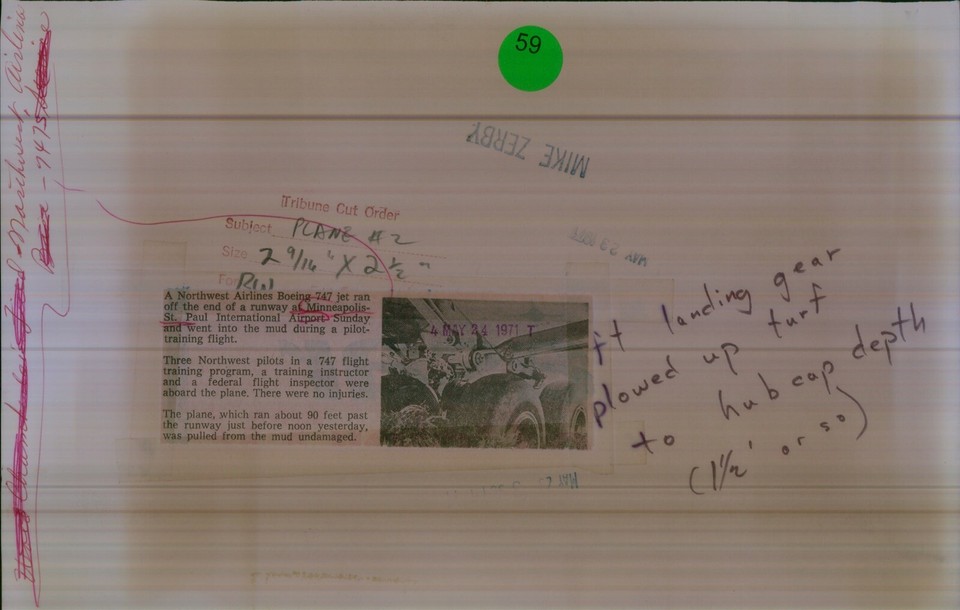 59
MIKE ZERBY
Northwest Airlines
747's
Tribune Cut Order
Subject PLANE #2
Size 2 9/16 " X 2 1/2 "
For
MAY 23
A Northwest Airlines Boeing 747 jet ran
off the end of a runway at Minneapolis-
St. Paul International Airport Sunday
and went into the mud during a pilot-
training flight.
Three Northwest pilots in a 747 flight
training program, a training instructor
and a federal flight inspector were
aboard the plane. There were no injuries.
The plane, which ran about 90 feet past
the runway just before noon yesterday,
was pulled from the mud undamaged.
4 MAY 24 1971 T
landing gear
plowed up turf
to hub cap depth
(1 1/2' or so)